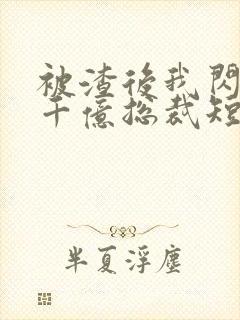 被渣後我閃
千億總裁短
半夏浮塵